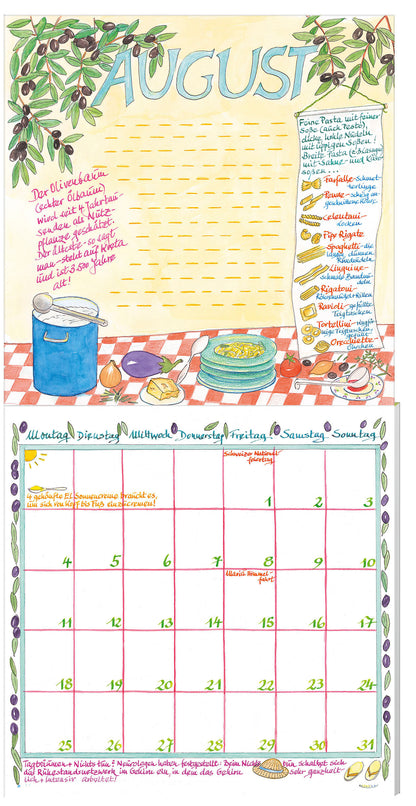 AUGUST
Feine Pasta mit feiner
Soße (auch Pesto),
dicke, hohle Nudeln
mit üppigen Soßen!
Breite Pasta (z.B. Lasagne)
mit Sahne- und Käse-
soßen...
Farfalle - Schmet-
terlinge
Penne - schräg an-
geschnittene Röhren
Celentani -
locken
Pipe Rigate
Spaghetti - die
idealen, dünnen
Rundnudeln
Linguine -
schmale Bandnu-
deln
Rigatoni -
Ravioli - gefüllte
Teigtaschen
Tortellini - ringför-
mige Teigtaschen,
gefüllt
Orecchiette -
Öhrchen
Der Olivenbaum
(echter Ölbaum)
wird seit 4 Jahrtau-
senden als Nutz-
pflanze geschätzt.
Der älteste - so sagt
man - steht auf Kreta
und ist 3.500 Jahre
alt!
Montag Dienstag Mittwoch Donnerstag Freitag Samstag Sonntag
Schweizer National-
feiertag
4 gehäufte EL Sonnencreme braucht es,
um sich von Kopf bis Fuß einzucremen!
1 2 3
4 5 6 7 8 9 10
Mariä Himmel-
fahrt
11 12 13 14 15 16 17
18 19 20 21 22 23 24
25 26 27 28 29 30 31
Tagträumen + Nichtstun! Neurologen haben festgestellt: Beim Nichts tun schaltet sich
das Ruhestandsnetzwerk im Gehirn ein, in dem das Gehirn sehr ganzheit-
lich + intensiv arbeitet!